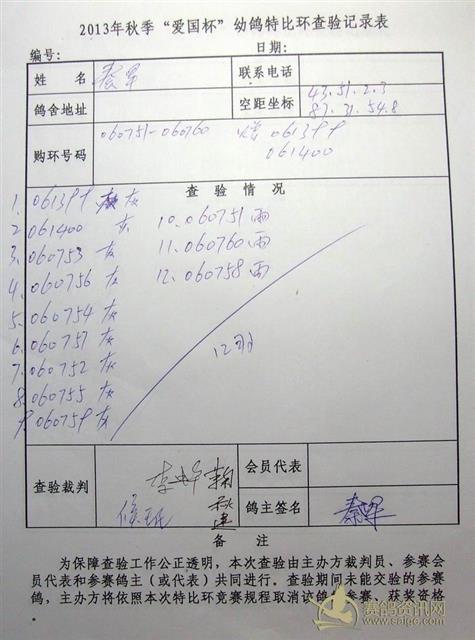 2013年秋季“爱国杯”幼鸽特比环查验记录表
编号: 日期:
姓 名 秦军 联系电话
鸽舍地址 空距坐标 43.51.2.3
87.31.54.8
购环号码 060751-060760 061399
061400
查 验 情 况
1. 061399 灰
2 061400 灰 10.060751 雨
3. 060753 灰 11.060760 雨
4. 060756 灰 12.060758 雨
5. 060754 灰
6. 060757 灰 12羽
7. 060752 灰
8. 060755 灰
9 060759 灰
查验裁判 会员代表
鸽主签名 秦军
备 注
为保障查验工作公正透明，本次查验由主办方裁判员、参赛会
员代表和参赛鸽主（或代表）共同进行。查验期间未能交验的参赛
鸽，主办方将依照本次特比环竞赛规程取消该鸽参赛、获奖资格
赛鸽资讯网
www.saige.com